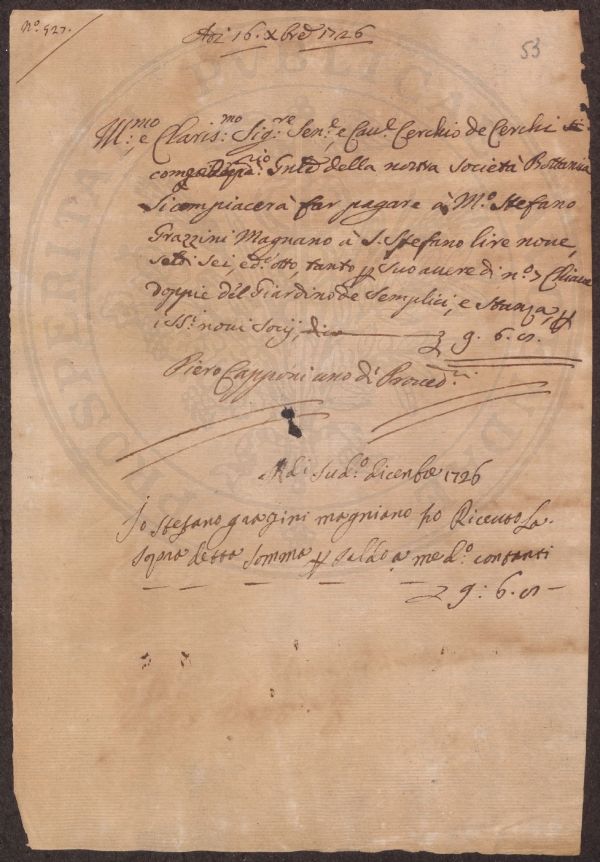 N.º 527.
53
Adi 16. Xbre 1726
Ill.mo, e Claris.mo Sig.re Sen.e, e Cau.e Cerchio de Cerchi
della nostra Società Bottanica
Si compiacerà far pagare à M.º Stefano
Grazzini Magnano à S. Stefano lire noue,
soldi sei, e d.i otto, tanto p suo auere di n.º 7 Chiaue
doppie del Giardino de Semplici, e Stanza, p
i SS.i noui Socij, dico 9. 6. 8.
Piero Capponi uno di Proued.ri
Adi Sud.º dicenbre 1726
Io Stefano grazini magniano ho Riceuto La
sopra detta somma p saldo a me d.º contanti
9: 6. 8